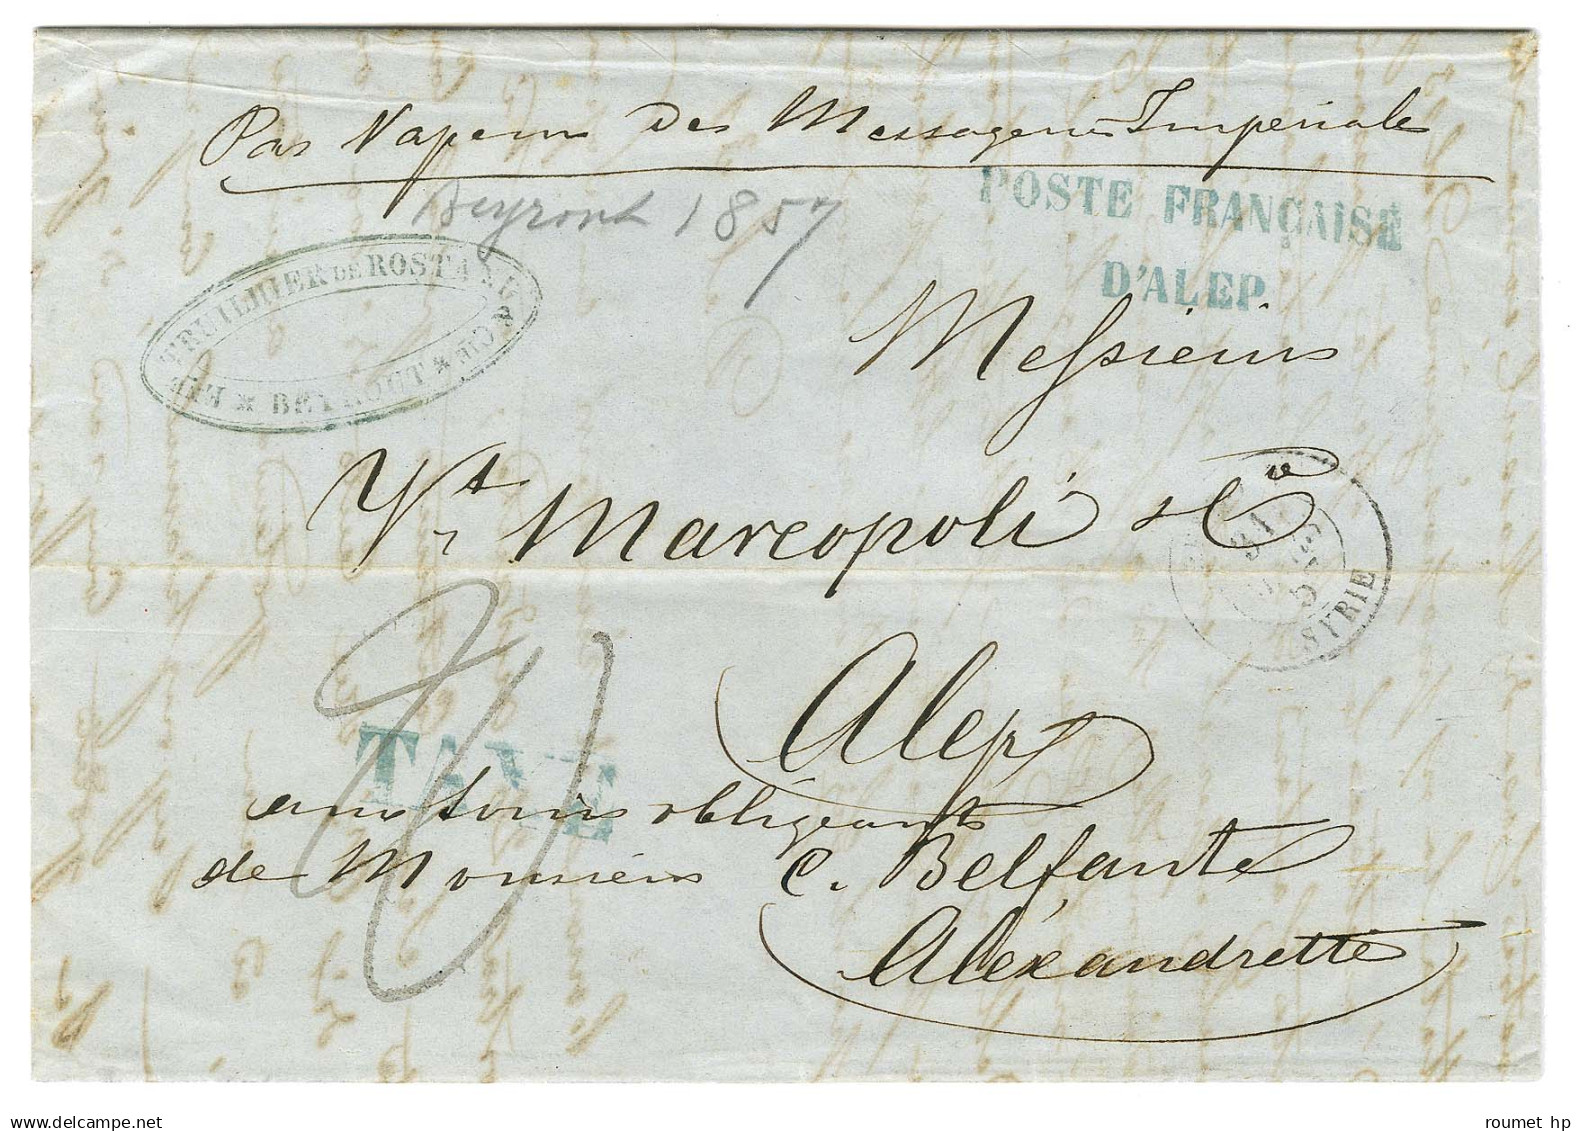 Par Vapeur Des Messageries Impériales
Beyrout 1857
POSTE FRANÇAISE
D'ALEP
TRUILHIER DE ROSTAND & CIE
* BEYROUT *
Messieurs
Vt Marcopoli & Cie
31
SYRIE
Alep
TAXE
aux soins obligeants
de Monsieur C. Belfante
Alexandrette
www.delcampe.net
roumet hp